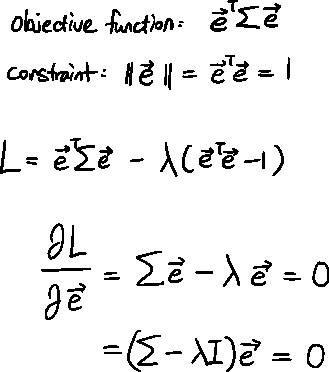 objective function: e⃗ᵀΣe⃗
constraint: ‖e⃗‖ = e⃗ᵀe⃗ = 1
L = e⃗ᵀΣe⃗ - λ(e⃗ᵀe⃗-1)
∂L/∂e⃗ = Σe⃗ - λe⃗ = 0
=(Σ-λI)e⃗ = 0